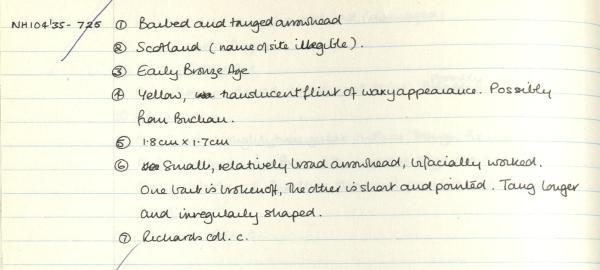 NH104'35-725 ① Barbed and tanged arrowhead
② Scotland (name of site illegible).
③ Early Bronze Age
④ Yellow, translucent flint of waxy appearance. Possibly
from Buchan.
⑤ 1.8cm x 1.7cm
⑥ Small, relatively broad arrowhead, bifacially worked.
One barb is broken off, The other is short and pointed. Tang longer
and irregularly shaped.
⑦ Richards coll. c.